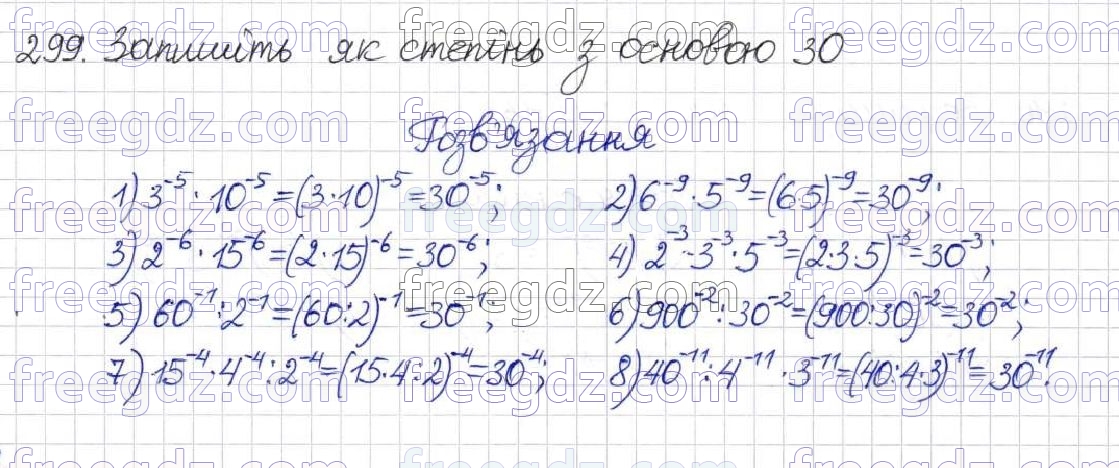 299. Запишіть як степінь з основою 30
Розв'язання
1) 3⁻⁵ · 10⁻⁵ = (3 · 10)⁻⁵ = 30⁻⁵; 2) 6⁻⁹ · 5⁻⁹ = (6·5)⁻⁹ = 30⁻⁹;
3) 2⁻⁶ · 15⁻⁶ = (2 · 15)⁻⁶ = 30⁻⁶; 4) 2⁻³ · 3⁻³ · 5⁻³ = (2·3·5)⁻³ = 30⁻³;
5) 60⁻¹ : 2⁻¹ = (60:2)⁻¹ = 30⁻¹; 6) 900⁻² : 30⁻² = (900:30)⁻² = 30⁻²;
7) 15⁻⁴ · 4⁻⁴ : 2⁻⁴ = (15·4:2)⁻⁴ = 30⁻⁴; 8) 40⁻¹¹ : 4⁻¹¹ · 3⁻¹¹ = (40:4·3)⁻¹¹ = 30⁻¹¹.
freegdz.com